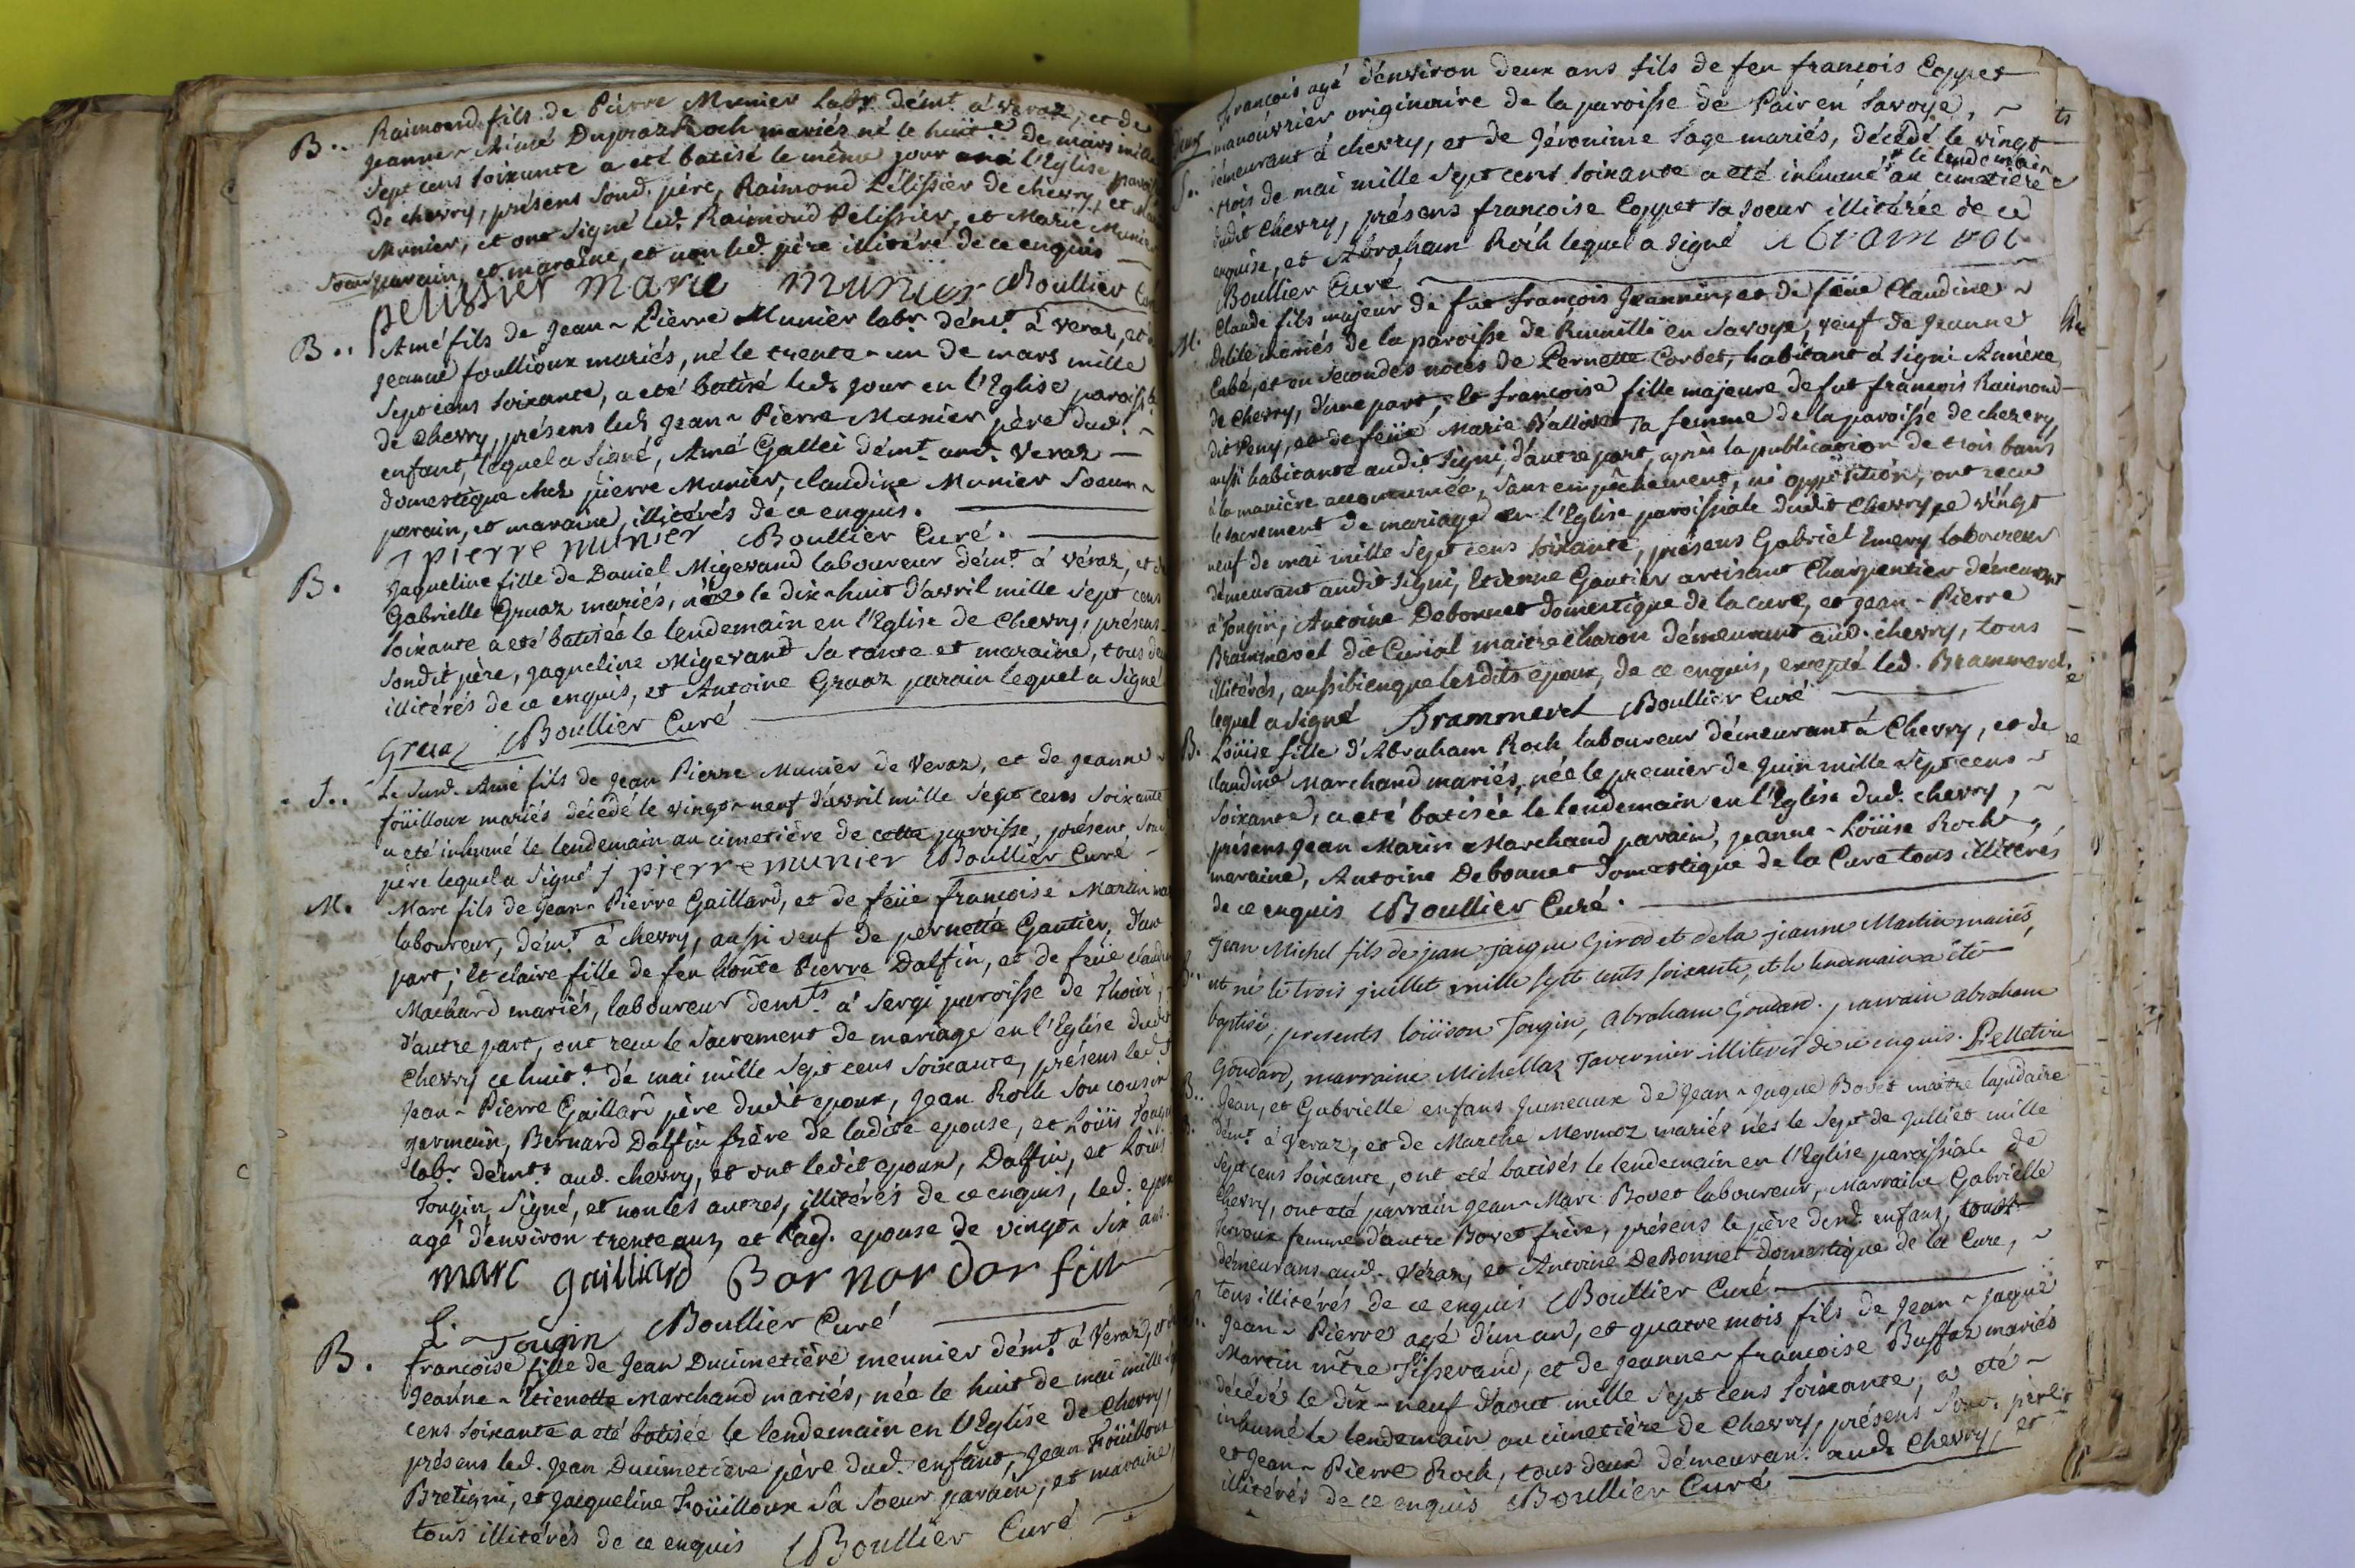 B.. Raimond fils de Pierre Munier labr. demt. à Veraz, et de
Jeanne-Aimé Dupraz Roch mariés né le huite. de mars mille
Sept cens soixante a eté batisé le même jour en l'Eglise parois
de chevry, présens Sond. père, Raimond Pélissier de chevry, et Marie
Munier, et ont Signé led. Raimond Pelissier, et Marie Munier
parain, et maraine, et non led. père illitéré de ce enquis
pelissier marie munier Boullier Curé
B.. Amé fils de Jean-Pierre Munier labr. démt. à Veraz, et de
Jeanne foullioux mariés, né le trente-un de mars mille
Sept cens Soixante, a eté batisé led. Jour en l'Eglise paroissle.
de Chevry, présens led. Jean-Pierre Munier père dud.
enfant, lequel a Signé, Amé Gallei démt. aud. Veraz
domestique chez pierre Munier, claudine Munier Soeur
parain, et maraine, illitérés de ce enquis.
J pierre munier Boullier Curé.
B. Jaqueline fille de Daniel Migevand laboureur démt. à Véraz, et de
Gabrielle Gruaz mariés, née le dix-huit d'avril mille Sept cens
Soixante a eté batisée le lendemain en l'Eglise de Chevry, présens
Sondit père, Jaqueline Migevand Sa tante et maraine, tous deux
illitérés de ce enquis, et Antoine Gruaz parain lequel a Signé
Gruaz Boullier Curé
S.. Le Susd. Amé fils de Jean Pierre Munier de Veraz, et de Jeanne
foüilloux mariés décédé le vingt-neuf d'avril mille Sept cens Soixante
a eté inhumé le lendemain au cimetière de cette paroisse, présent Sond.
père lequel a Signé J pierre munier Boullier Curé
M. Marc fils de Jean-Pierre Gaillard, et de feüe françoise Martin
laboureur, démt. à chevry, aussi veuf de pernette Gautier, d'une
part; et claire fille de feu honte Pierre Dalfin, et de feüe claudine
Machard mariés, laboureur demts. à Sergi paroisse de Thoiri,
d'autre part, ont recu le Sacrement de mariage en l'Eglise dudit
Chevry ce huite. de mai mille Sept cens Soixante, présens led.
Jean-Pierre Gaillard père dudit epoux, Jean Roch Son cousin
germain, Bernard Dalfin frère de ladite epouse, et Loüis Tougin
labr. démts. aud. chevry, et ont ledit epoux, Dalfin, et Loüis
Tougin Signé, et non les autres, illitérés de ce enquis, led. epoux
agé d'environ trente ans, et lad. epouse de vingt-Six ans.
marc gailliard Bor nor dor fin
L. Tougin Boullier Curé
B. françoise fille de Jean Ducimetière meunier démt. à Veraz, et de
Jeanne-Etienette Marchand mariés, née le huit de mai mille Sept
cens Soixante a eté batisée le lendemain en l'Eglise de Chevry,
présens led. Jean Ducimetière père dud. enfant, Jean Foüilloux
Bretigni, et Jacqueline Foüilloux Sa Soeur parain, et maraine,
tous illitérés de ce enquis Boullier Curé
François agé d'environ deux ans fils de feu françois Coppet
manoüvrier originaire de la paroisse de Pair en Savoye,
S.. démeurant à chevry, et de Jéronime Sage mariés, décédé le vingt
trois de mai mille Sept cent Soixante a eté inhumé le lendemain au cimetière
dudit Chevry, présens françoise Coppet Sa Soeur illitérée de ce
enquise, et Abraham Roch lequel a Signé
Boullier Curé
M. Claude fils majeur de fut françois Jeannin, et de feüe Claudine
Delile mariés de la paroisse de Rumilli en Savoye, veuf de Jeanne
Labé, et en secondes noces de Pernette Corbet, habitant à Signi Annèxe
de chevry, d'une part, et françoise fille majeure de fut françois Raimond
dit Peny, et de feüe Marie Ballivet Sa femme de la paroisse de chezery,
aussi habitante audit Signi, d'autre part, après la publication de trois bans
à la manière accoutumée, Sans empêchement, ni opposition, ont recu
le Sacrement de mariage en l'Eglise paroissiale dudit Chevry ce vingt
neuf de mai mille Sept cens Soixante, présens Gabriel Emery laboureur
démeurant audit Signi, Etienne Gautier artisant Charpentier démeurant
à Tougin, Antoine Debonnet domestique de la cure, et Jean-Pierre
Brammerel dit Curial maitre charon démeurant aud. chevry, tous
illitérés, aussibienque lesdits epoux, de ce enquis, excepté led. Brammerel,
lequel a Signé Brammerel Boullier Curé
B. Loüise fille d'Abraham Roch laboureur démeurant à Chevry, et de
claudine Marchand mariés, née le premier de Juin mille Sept cens
Soixante, a eté batisée le lendemain en l'Eglise dud. chevry,
présens Jean Marin Marchand parain, Jeanne-Loüise Roch
maraine, Antoine Debonnet domestique de la Cure tous illitérés
de ce enquis Boullier Curé.
Jean Michel fils de jean jaque Girod et de la jeanne Martin mariés,
est né le trois juillet mille sept cents soixante, et le lendemain a été
baptisé, presents loüison Tougin, abraham Goudard. parrain abraham
Goudard, marraine Michellaz Tavernier illiteres de ce enquis. Pelletier
B.. Jean, et Gabrielle enfans Jumeaux de Jean-Jaque Bovet maitre lapidaire
démt. à Veraz, et de Marthe Mermoz mariés nés le Sept de Julliet mille
Sept cens Soixante, ont eté batisés le lendemain en l'Eglise paroissiale de
Chevry, ont eté parrain Jean-Marc Bovet laboureur, Marraine Gabrielle
femme d'autre Bovet frère, présens le père desd. enfans, tous
démeurans aud. Véraz, et Antoine DeBonnet domestique de la Cure,
tous illitérés de ce enquis Boullier Curé
Jean-Pierre agé d'un an, et quatre mois fils de Jean-Jaque
Martin mtre Tisserand, et de Jeanne-françoise Buffaz mariés
décédé le dix-neuf d'aout mille Sept cens Soixante, a eté
inhumé le lendemain au cimetière de Chevry, présens Sond. père
et Jean-Pierre Roch, tous deux démeurans aud. Chevry, et
illitérés de ce enquis Boullier Curé